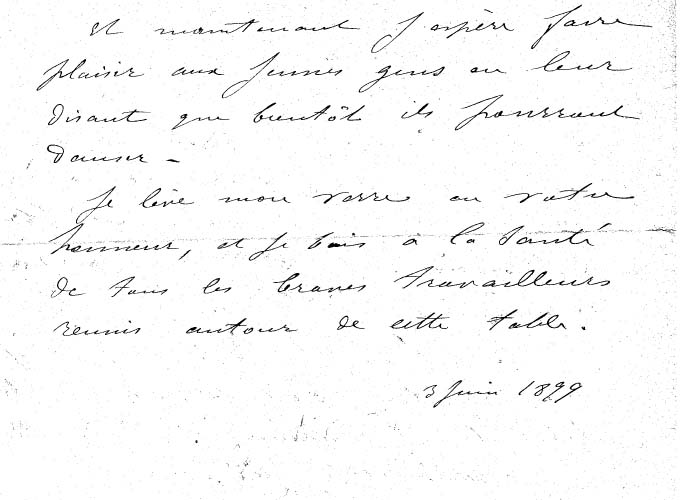 Et maintenant j'espère faire
plaisir aux jeunes gens en leur
disant que bientôt ils pourront
danser -
Je lève mon verre en votre
honneur, et je bois à la santé
de tous les braves travailleurs
reunis autour de cette table.
3 juin 1899